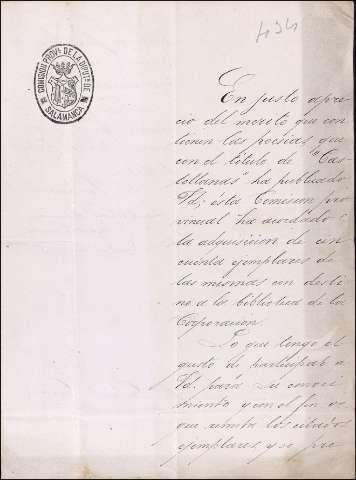 434
COMISIÓN PROVL. DE LA DIPUTN. DE
SALAMANCA
En justo apre-
cio del mérito que con
tienen las poesías, que
con el título de "Cas-
tellanas" ha publicado
Vd; ésta Comision pro
vincial ha acordado
la adquisicion de cin
cuenta ejemplares de
las mismas con desti
no a la biblioteca de la
Corporacion.
Lo que tengo el
gusto de participar a
Vd. para su conoci
miento y con el fin de
que remita los citados
ejemplares, y se pre